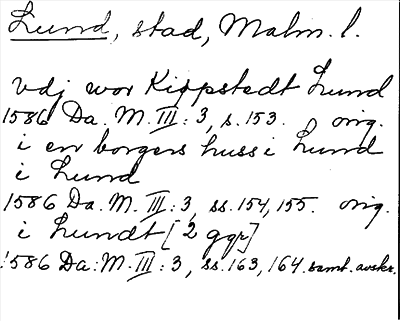 Lund, stad, Malm. l.
vdj wor Kippstedt Lund
1586 Da. M. III: 3, s. 153. orig.
i en borgers huss i Lund
i Lund
1586 Da. M. III: 3, ss. 154, 155. orig.
i Lundt [2 ggr]
1586 Da. M. III: 3, ss. 163, 164. samt. avskr.